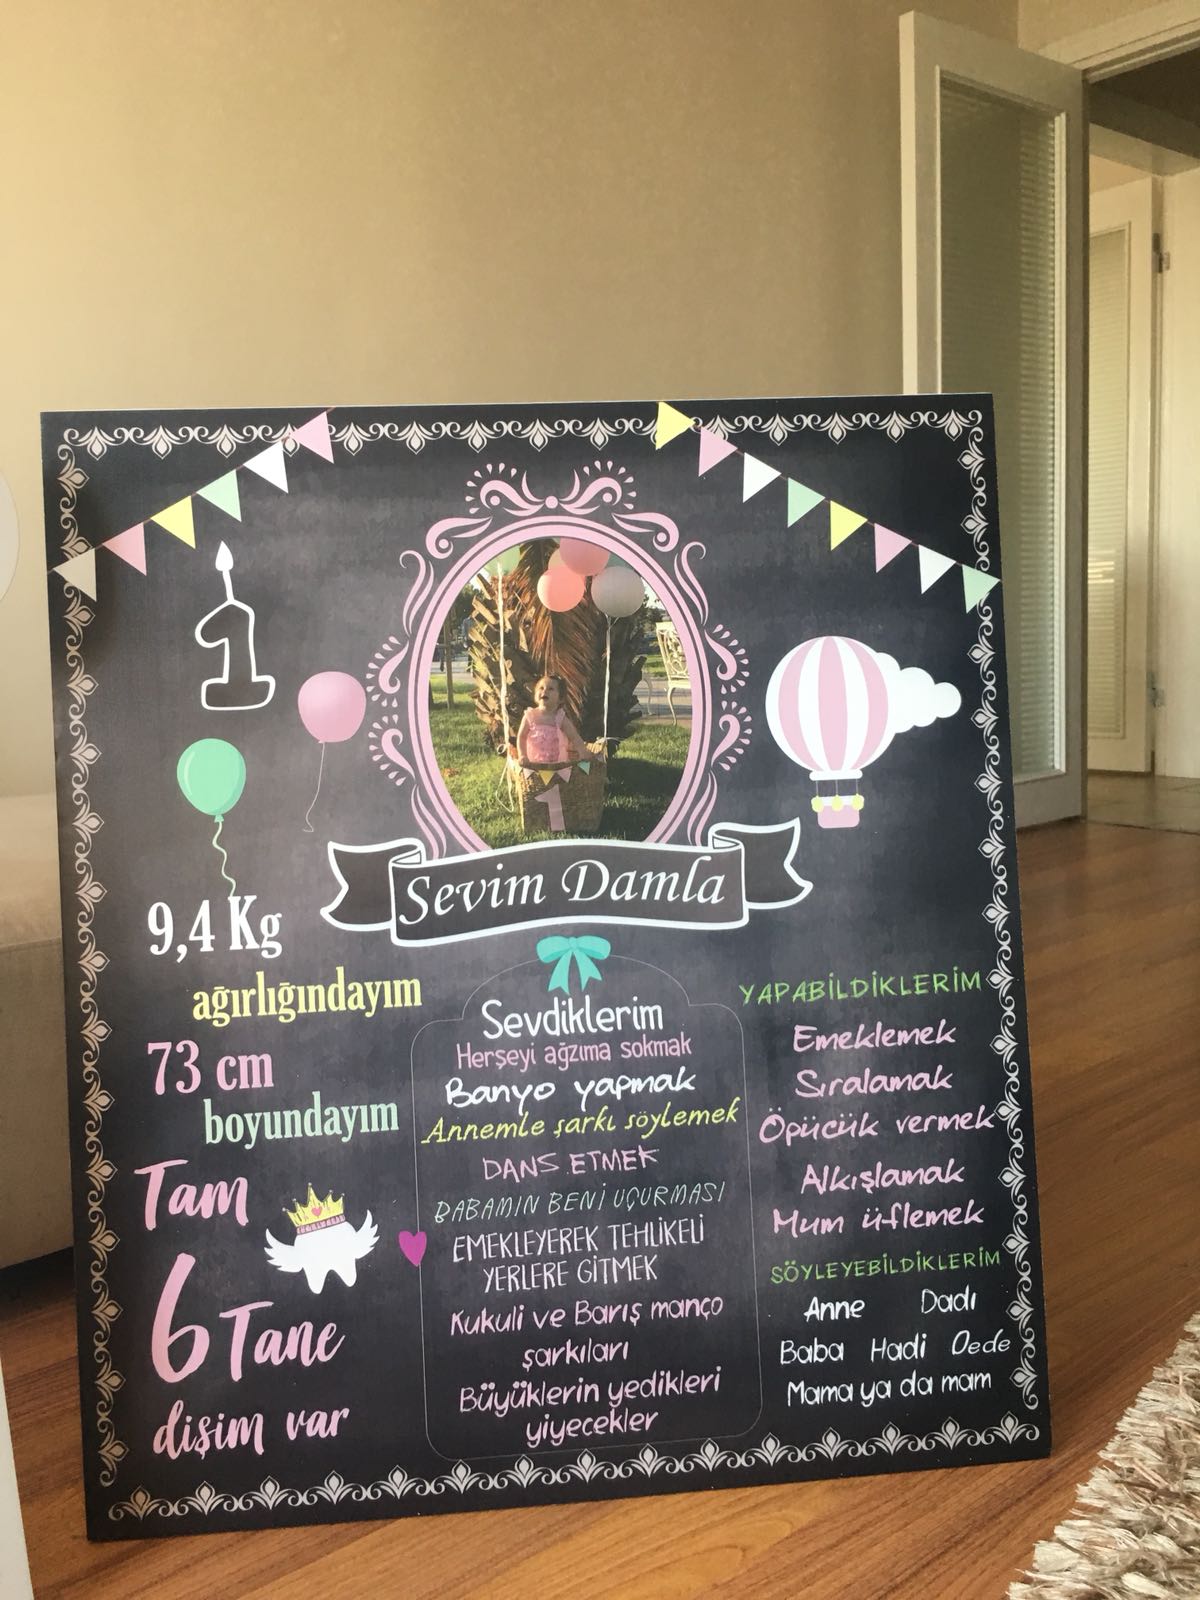 1
1
Sevim Damla
9,4 Kg
ağırlığındayım
73 cm
boyundayım
Tam
6 Tane
dişim var
Sevdiklerim
Herşeyi ağzıma sokmak
Banyo yapmak
Annemle şarkı söylemek
DANS ETMEK
BABAMIN BENİ UÇURMASI
EMEKLEYEREK TEHLİKELİ
YERLERE GİTMEK
Kukuli ve Barış manço
şarkıları
Büyüklerin yedikleri
yiyecekler
YAPABİLDİKLERİM
Emeklemek
Sıralamak
Öpücük vermek
Alkışlamak
Mum üflemek
SÖYLEYEBİLDİKLERİM
Anne Dadı
Baba Hadi Dede
Mama ya da mam